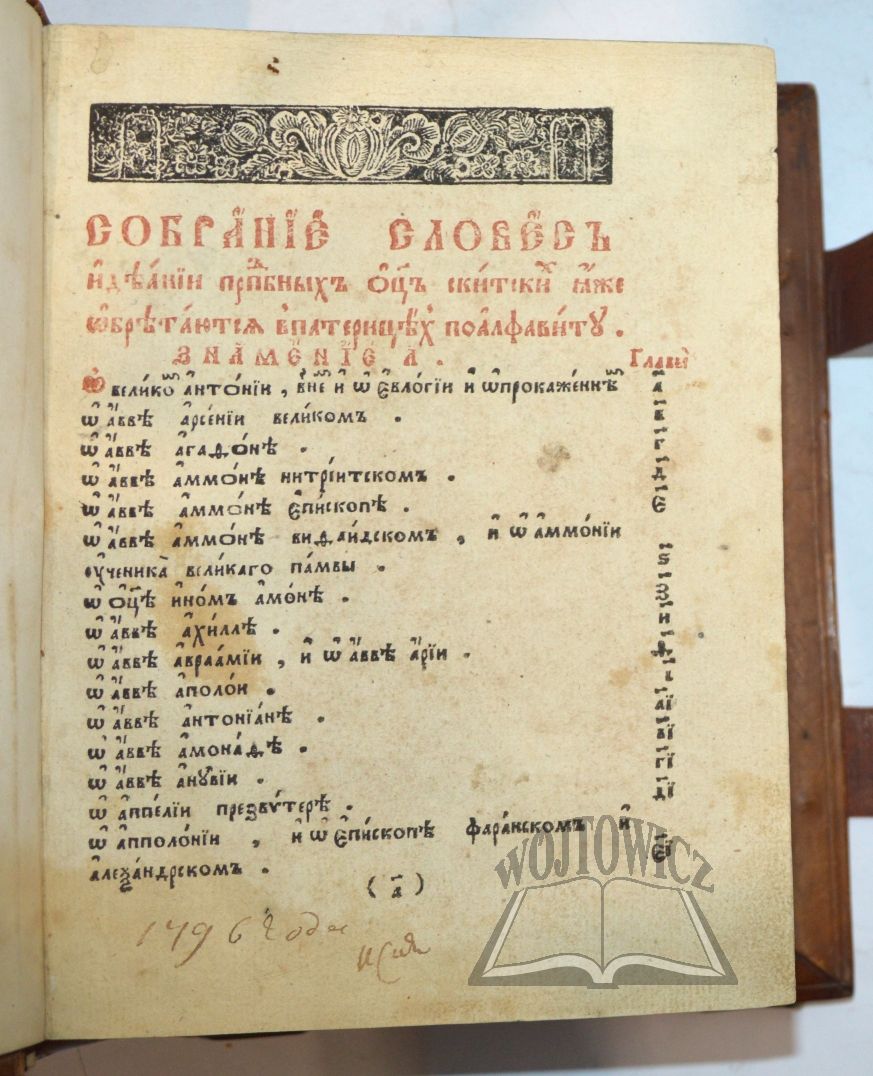 СОБРА́НІЕ СЛОВЕ́СЪ
И҆ДѢѦ́НІИ прпⷣбныхъ О҆ц҃ъ ски́тскиⷯ ꙗ҆́же
ѡ҆брѣта́ютсѧ в̾патерицѣⷯ поа҆лфави́ту .
ЗНАМЕ́НІЕ А҃ . Главы̀
Ѡ҆ вели́коⷨ а҆нто́нїи , и҆ ѡ҆ є҆ѵло́гїи и҆ ѡ҆прокаже́ннѣⷨ а҃
ѡ҆ а҆́ввѣ а҆рсе́нїи вели́комъ . в҃
ѡ҆ а҆́ввѣ а҆гаѳо́нѣ . г҃
ѡ҆ а҆́ввѣ а҆ммо́нѣ нитрі́итскомъ . д҃
ѡ҆ а҆́ввѣ а҆ммо́нѣ є҆пи́скопѣ . є҃
ѡ҆ а҆́ввѣ а҆ммо́нѣ виѳаи́дскомъ , и҆ ѡ҆ а҆ммо́нїи
ᲂу҆ченика̀ вели́каго па́мвы . ѕ҃
ѡ҆ ѻ҆ц҃ѣ и҆но́мъ а҆мо́нѣ . з҃
ѡ҆ а҆́ввѣ а҆хи́ллѣ . и҃
ѡ҆ а҆́ввѣ а҆враа́мїи , и҆ ѡ҆ а҆́ввѣ а҆́рїи . ѳ҃
ѡ҆ а҆́ввѣ а҆поло́и . і҃
ѡ҆ а҆́ввѣ а҆нтонїа́нѣ . а҃і
ѡ҆ а҆́ввѣ а҆мона́ѳѣ . в҃і
ѡ҆ а҆́ввѣ а҆нꙋ́вїи . г҃і
ѡ҆ а҆ппе́лїи презвѵ́терѣ . д҃і
ѡ҆ а҆пполо́нїи , и҆ ѡ҆ є҆пи́скопѣ фара́нскомъ и҆
а҆леѯа́ндрскомъ . є҃і
( а҃ )
1796 года
WÓJTOWICZ